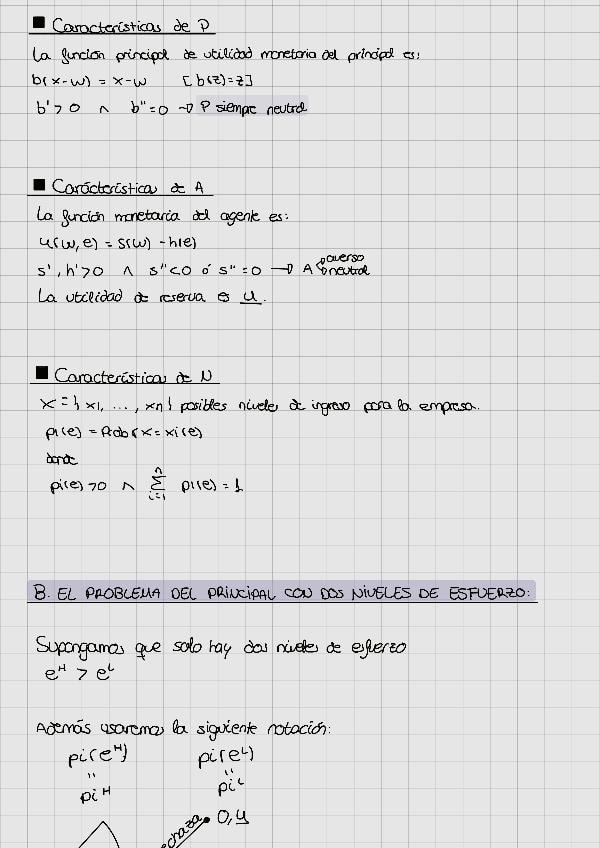 ■ Características de P
La función principal de utilidad monetaria del principal es:
b(x-w) = x-w [b(z)=z]
b'>0 ∧ b''=0 → P siempre neutral
■ Carácterística de A
La función monetaria del agente es:
u(w,e) = s(w) - h(e)
s', h'>0 ∧ s''<0 ó s''=0 → A averso neutral
La utilidad de reserva es u.
■ Característica de N
X = {x1, ..., xn} posibles niveles de ingreso para la empresa.
pi(e) = Prob(x=xi(e)
donde
pi(e)>0 ∧ n∑i=1 pi(e) = 1
B. EL PROBLEMA DEL PRINCIPAL CON DOS NIVELES DE ESFUERZO:
Supongamos que solo hay dos niveles de esfuerzo
eᴴ > eᴸ
Además usaremos la siguiente notación:
pi(eᴴ) pi(eᴸ)
" "
piᴴ piᴸ
0,u